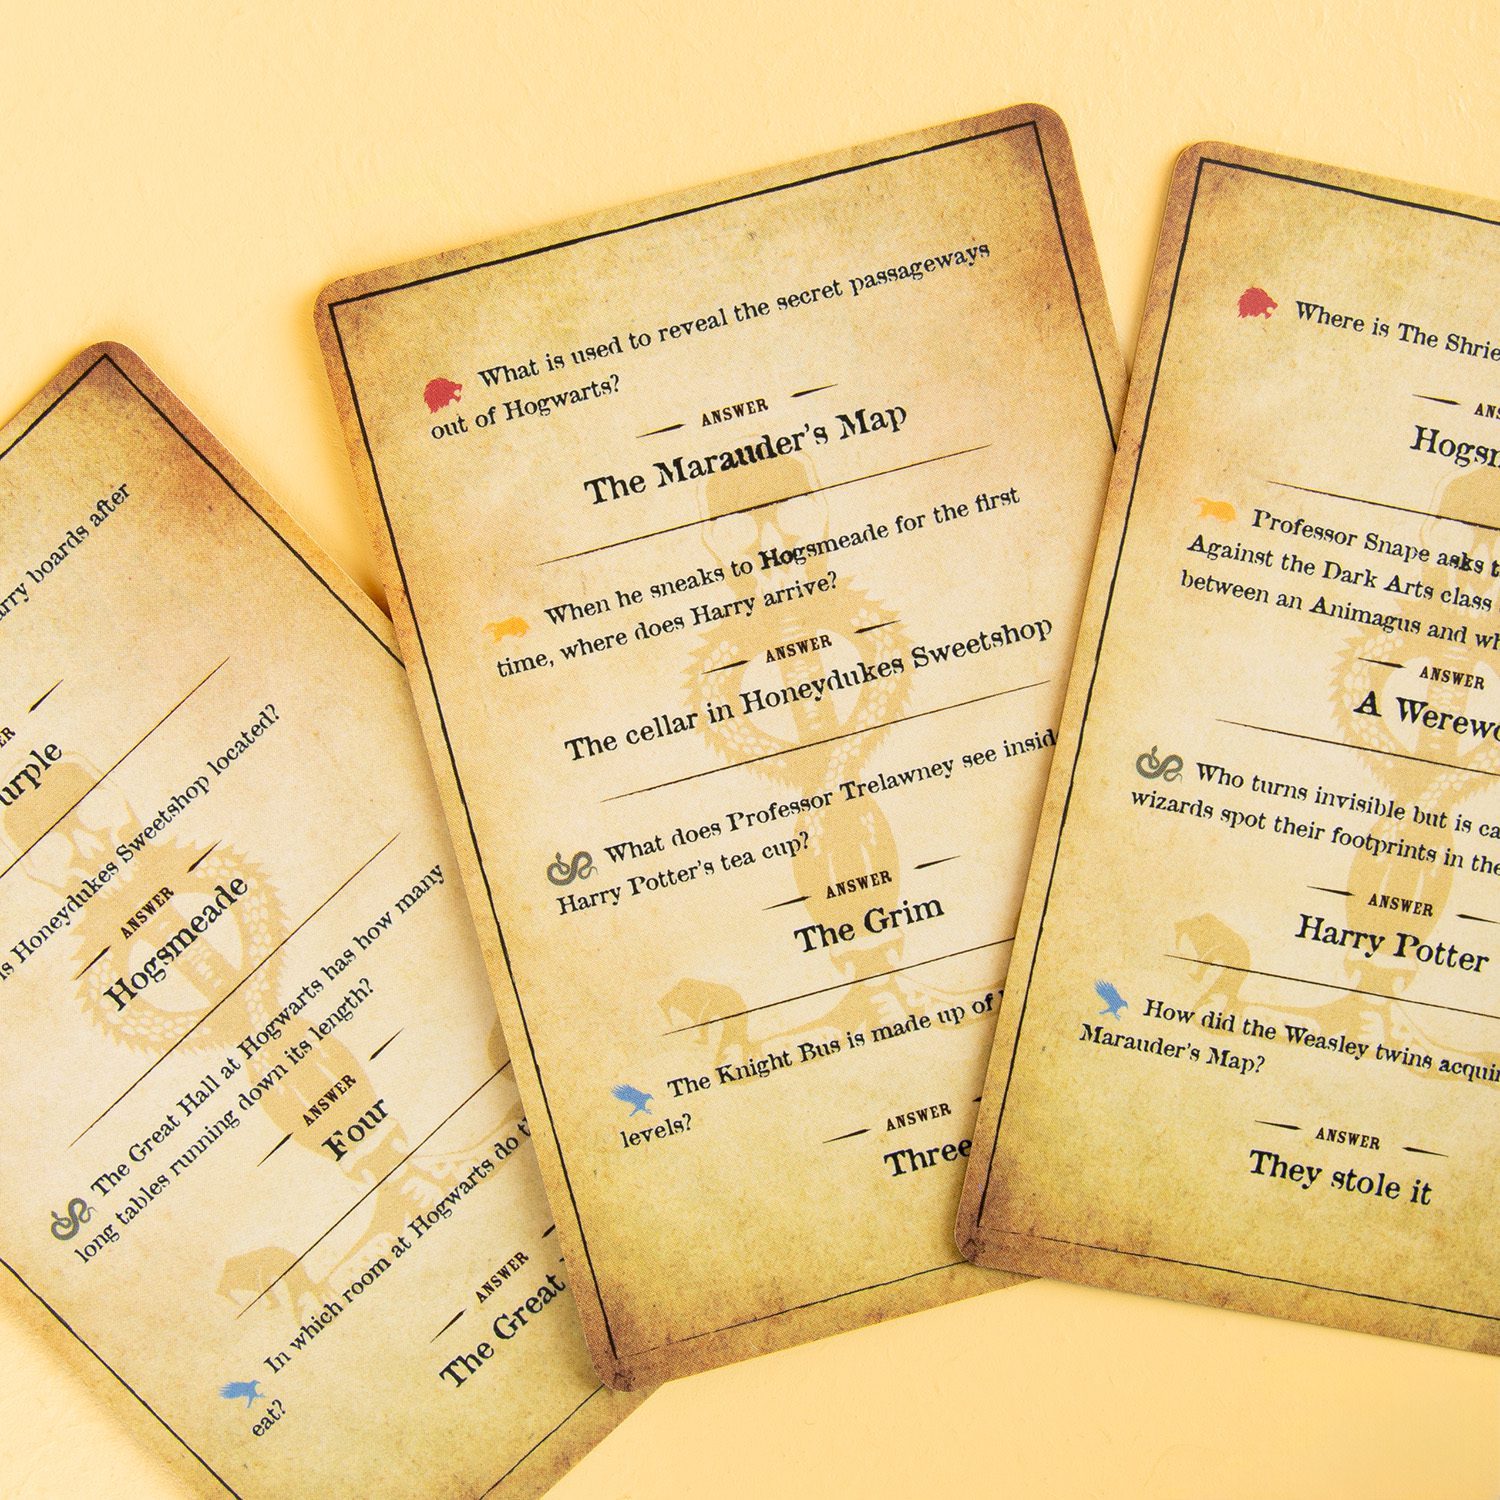 arry boards after
urple
is Honeydukes Sweetshop located?
ANSWER
Hogsmeade
The Great Hall at Hogwarts has how many
long tables running down its length?
ANSWER
Four
In which room at Hogwarts do th
eat?
ANSWER
The Great
What is used to reveal the secret passageways
out of Hogwarts?
ANSWER
The Marauder's Map
When he sneaks to Hogsmeade for the first
time, where does Harry arrive?
ANSWER
The cellar in Honeydukes Sweetshop
What does Professor Trelawney see insid
Harry Potter's tea cup?
ANSWER
The Grim
The Knight Bus is made up of
levels?
ANSWER
Three
Where is The Shrie
ANS
Hogsm
Professor Snape asks t
Against the Dark Arts class
between an Animagus and wh
ANSWER
A Werewo
Who turns invisible but is ca
wizards spot their footprints in the
ANSWER
Harry Potter
How did the Weasley twins acquir
Marauder's Map?
ANSWER
They stole it